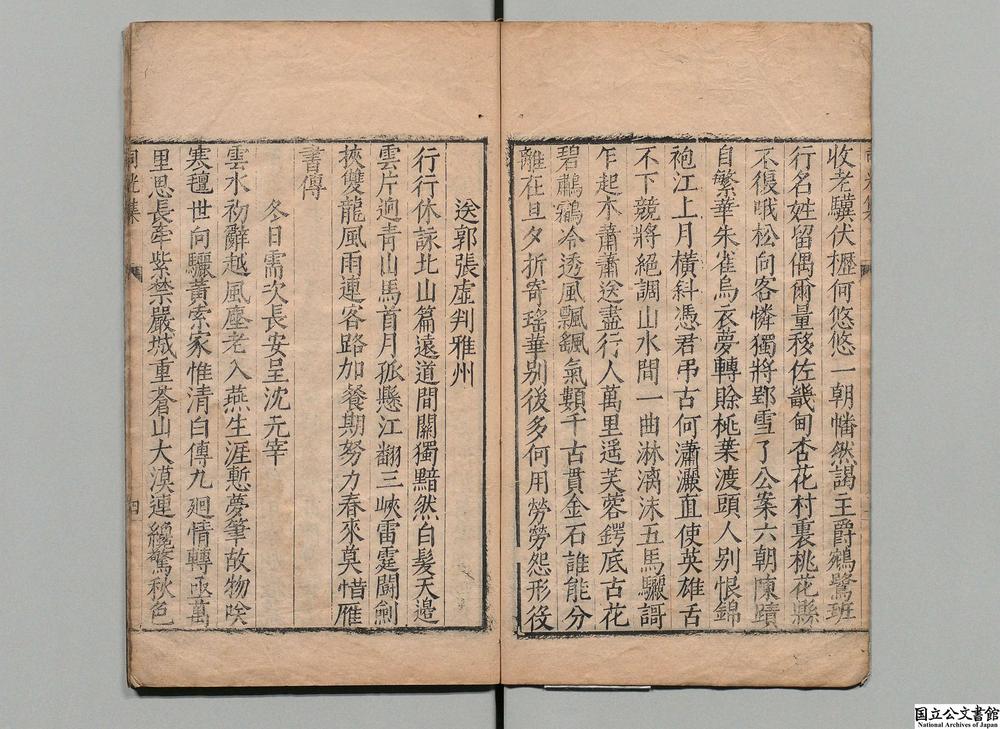 收老驥伏櫪何悠悠一朝幡然謁王爵鵷鷺班
行名姓留偶爾量移佐畿甸杏花村裏桃花縣
不復哦松向客憐獨將郢雪了公案六朝陳蹟
自繁華朱雀烏衣夢轉賒桃葉渡頭人別恨錦
袍江上月橫斜憑君弔古何瀟灑直使英雄舌
不下競將絕調山水間一曲淋漓沫五馬驪謌
乍起木蕭蕭送盡行人萬里遙芙蓉鍔底古花
碧鸊鷉冷透風飄颻氣類千古貫金石誰能分
離在旦夕折寄瑤華別後多何用勞勞怨形役
送郭張虛判雅州
行行休詠北山篇遠道間關獨黯然白髮天邊
雲片迥青山馬首月孤懸江翻三峽雷霆鬪劍
挾雙龍風雨連客路加餐期努力春來莫惜雁
書傳
冬日需次長安呈沈元宰
雲水初辭越風塵老入燕生涯慙夢筆故物
寒氊世向驪黃索家惟清白傳九廻情轉亟萬
里思長牽紫禁嚴城重蒼山大漠連纔驚秋色
四
国立公文書館
National Archives of Japan